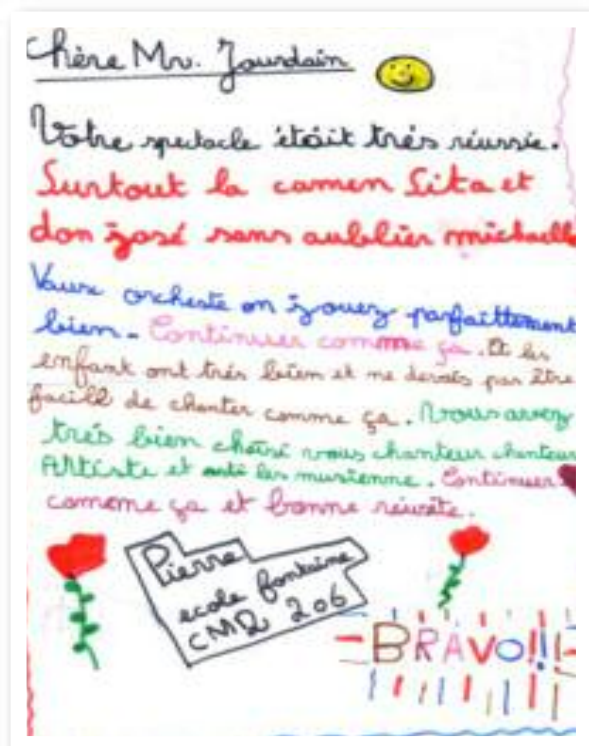 Chère Mr. Jourdain
Votre spectacle était très réussie.
Surtout la carmen Lita et
don josé sans aublier michaella
Vaure orcheste on jouez parfaittement
bien. Continuer comme ça. Et les
enfant ont très bien et ne devais pas être
facill de chanter comme ça. Vous avez
très bien choisi vous chanteur chanteur
Artiste et les musienne. Continuer
comme ça et bonne réusite.
Pierre
ecole fontaine
CM2 206
BRAVO!!!